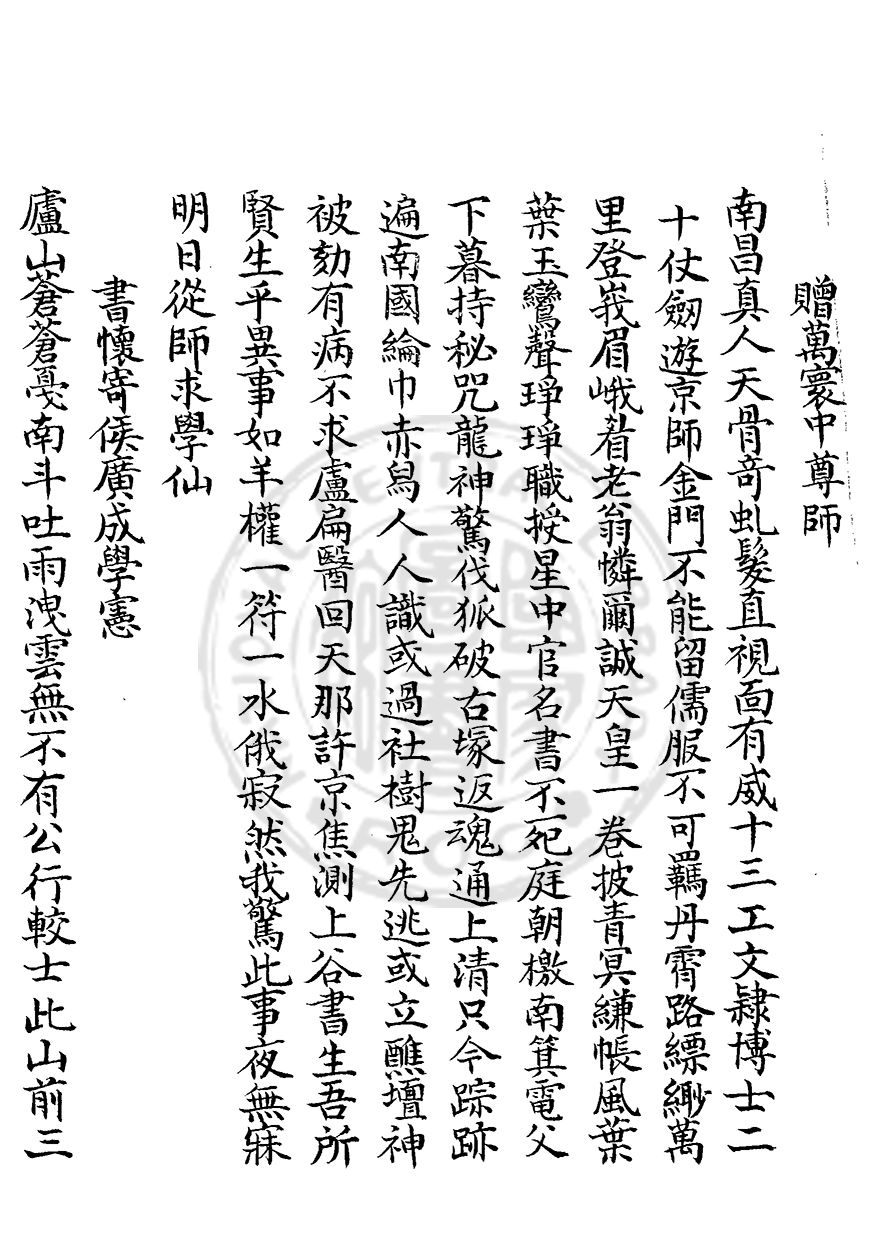 贈萬寰中尊師
南昌真人天骨奇虬髮直視面有威十三工文隸博士二
十仗劔遊京師金門不能留儒服不可羈丹霄路縹緲萬
里登峩眉峨着老翁憐爾誠天皇一卷披青冥縑帳風葉
葉玉鸞聲琤琤職授星中官名書不死庭朝檄南箕電父
下暮持秘咒龍神驚伐狐破古塚返魂通上清只今踪跡
遍南國綸巾赤舄人人識或過社樹鬼先逃或立醮壇神
被劾有病不求盧扁醫回天那許京焦測上谷書生吾所
賢生平異事如羊權一符一水俄寂然我驚此事夜無寐
明日從師求學仙
書懷寄侯廣成學憲
廬山蒼蒼戞南斗吐雨洩雲無不有公行較士此山前三